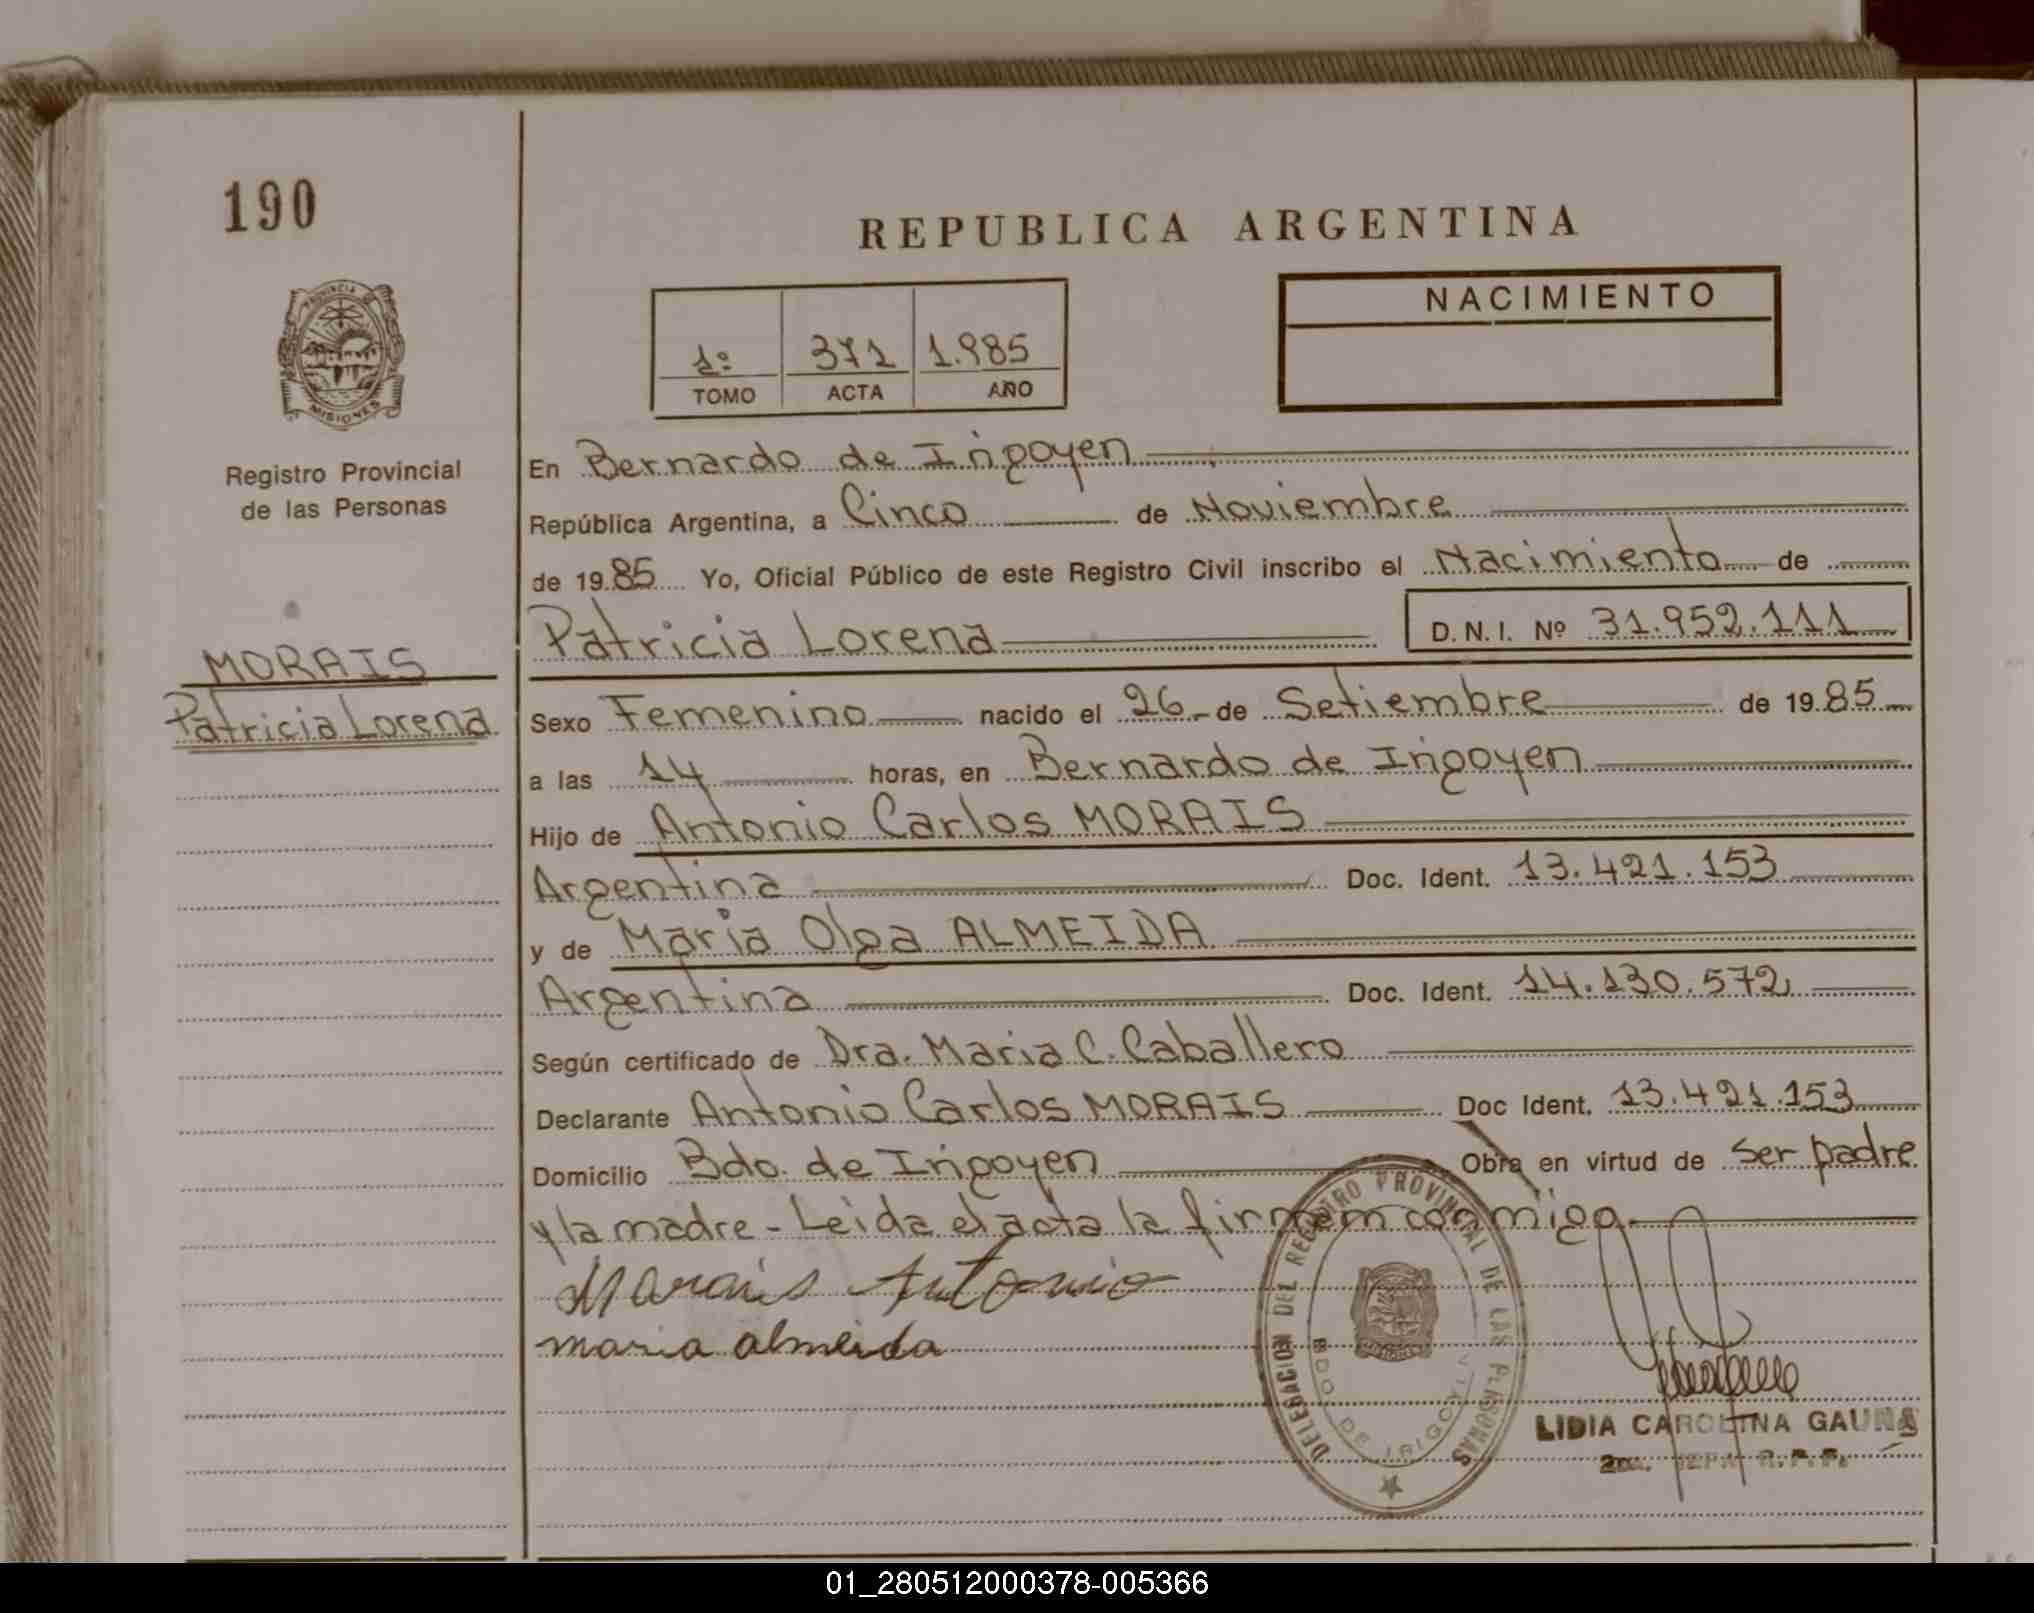 190
REPUBLICA ARGENTINA
PROVINCIA DE
MISIONES
Registro Provincial
de las Personas
1º 371 1.985
TOMO ACTA AÑO
NACIMIENTO
En Bernardo de Irigoyen
República Argentina, a Cinco de Noviembre
de 1985 Yo, Oficial Público de este Registro Civil inscribo el Nacimiento de
Patricia Lorena D.N.I. Nº 31.952.111
MORAIS
Patricia Lorena
Sexo Femenino nacido el 26 de Setiembre de 1985
a las 14 horas, en Bernardo de Irigoyen
Hijo de Antonio Carlos MORAIS
Argentina Doc. Ident. 13.421.153
y de Maria Olga ALMEIDA
Argentina Doc. Ident. 14.130.572
Según certificado de Dra. Maria C. Caballero
Declarante Antonio Carlos MORAIS Doc Ident. 13.421.153
Domicilio Bdo. de Irigoyen Obra en virtud de ser padre
y la madre - Leida el acta la firmam conmigo.
Morais Antonio
maria almeida
DELEGACION DEL REGISTRO PROVINCIAL DE LAS PERSONAS
BDO DE IRIGOYEN
LIDIA CAROLINA GAUNA
R.P.P.
01_280512000378-005366